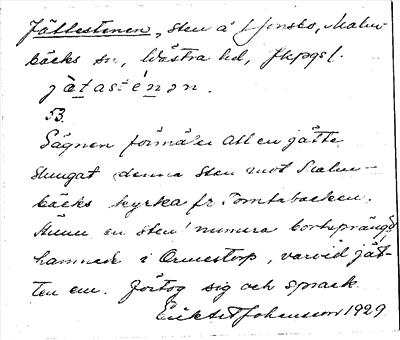 Jättestenen, sten å Jonsbo, Malm-
bäcks sn, Västra hd, Jkpgs l.
jätastenən.
53.
Sägnen förmäler att en jätte
slungat denna sten mot Malm-
bäcks kyrka fr. Tomtabacken.
Ännu en sten numera bortsprängd
hamnade i Ormestorp, varvid jät-
ten em. förtog sig och sprack.
Johansson 1929